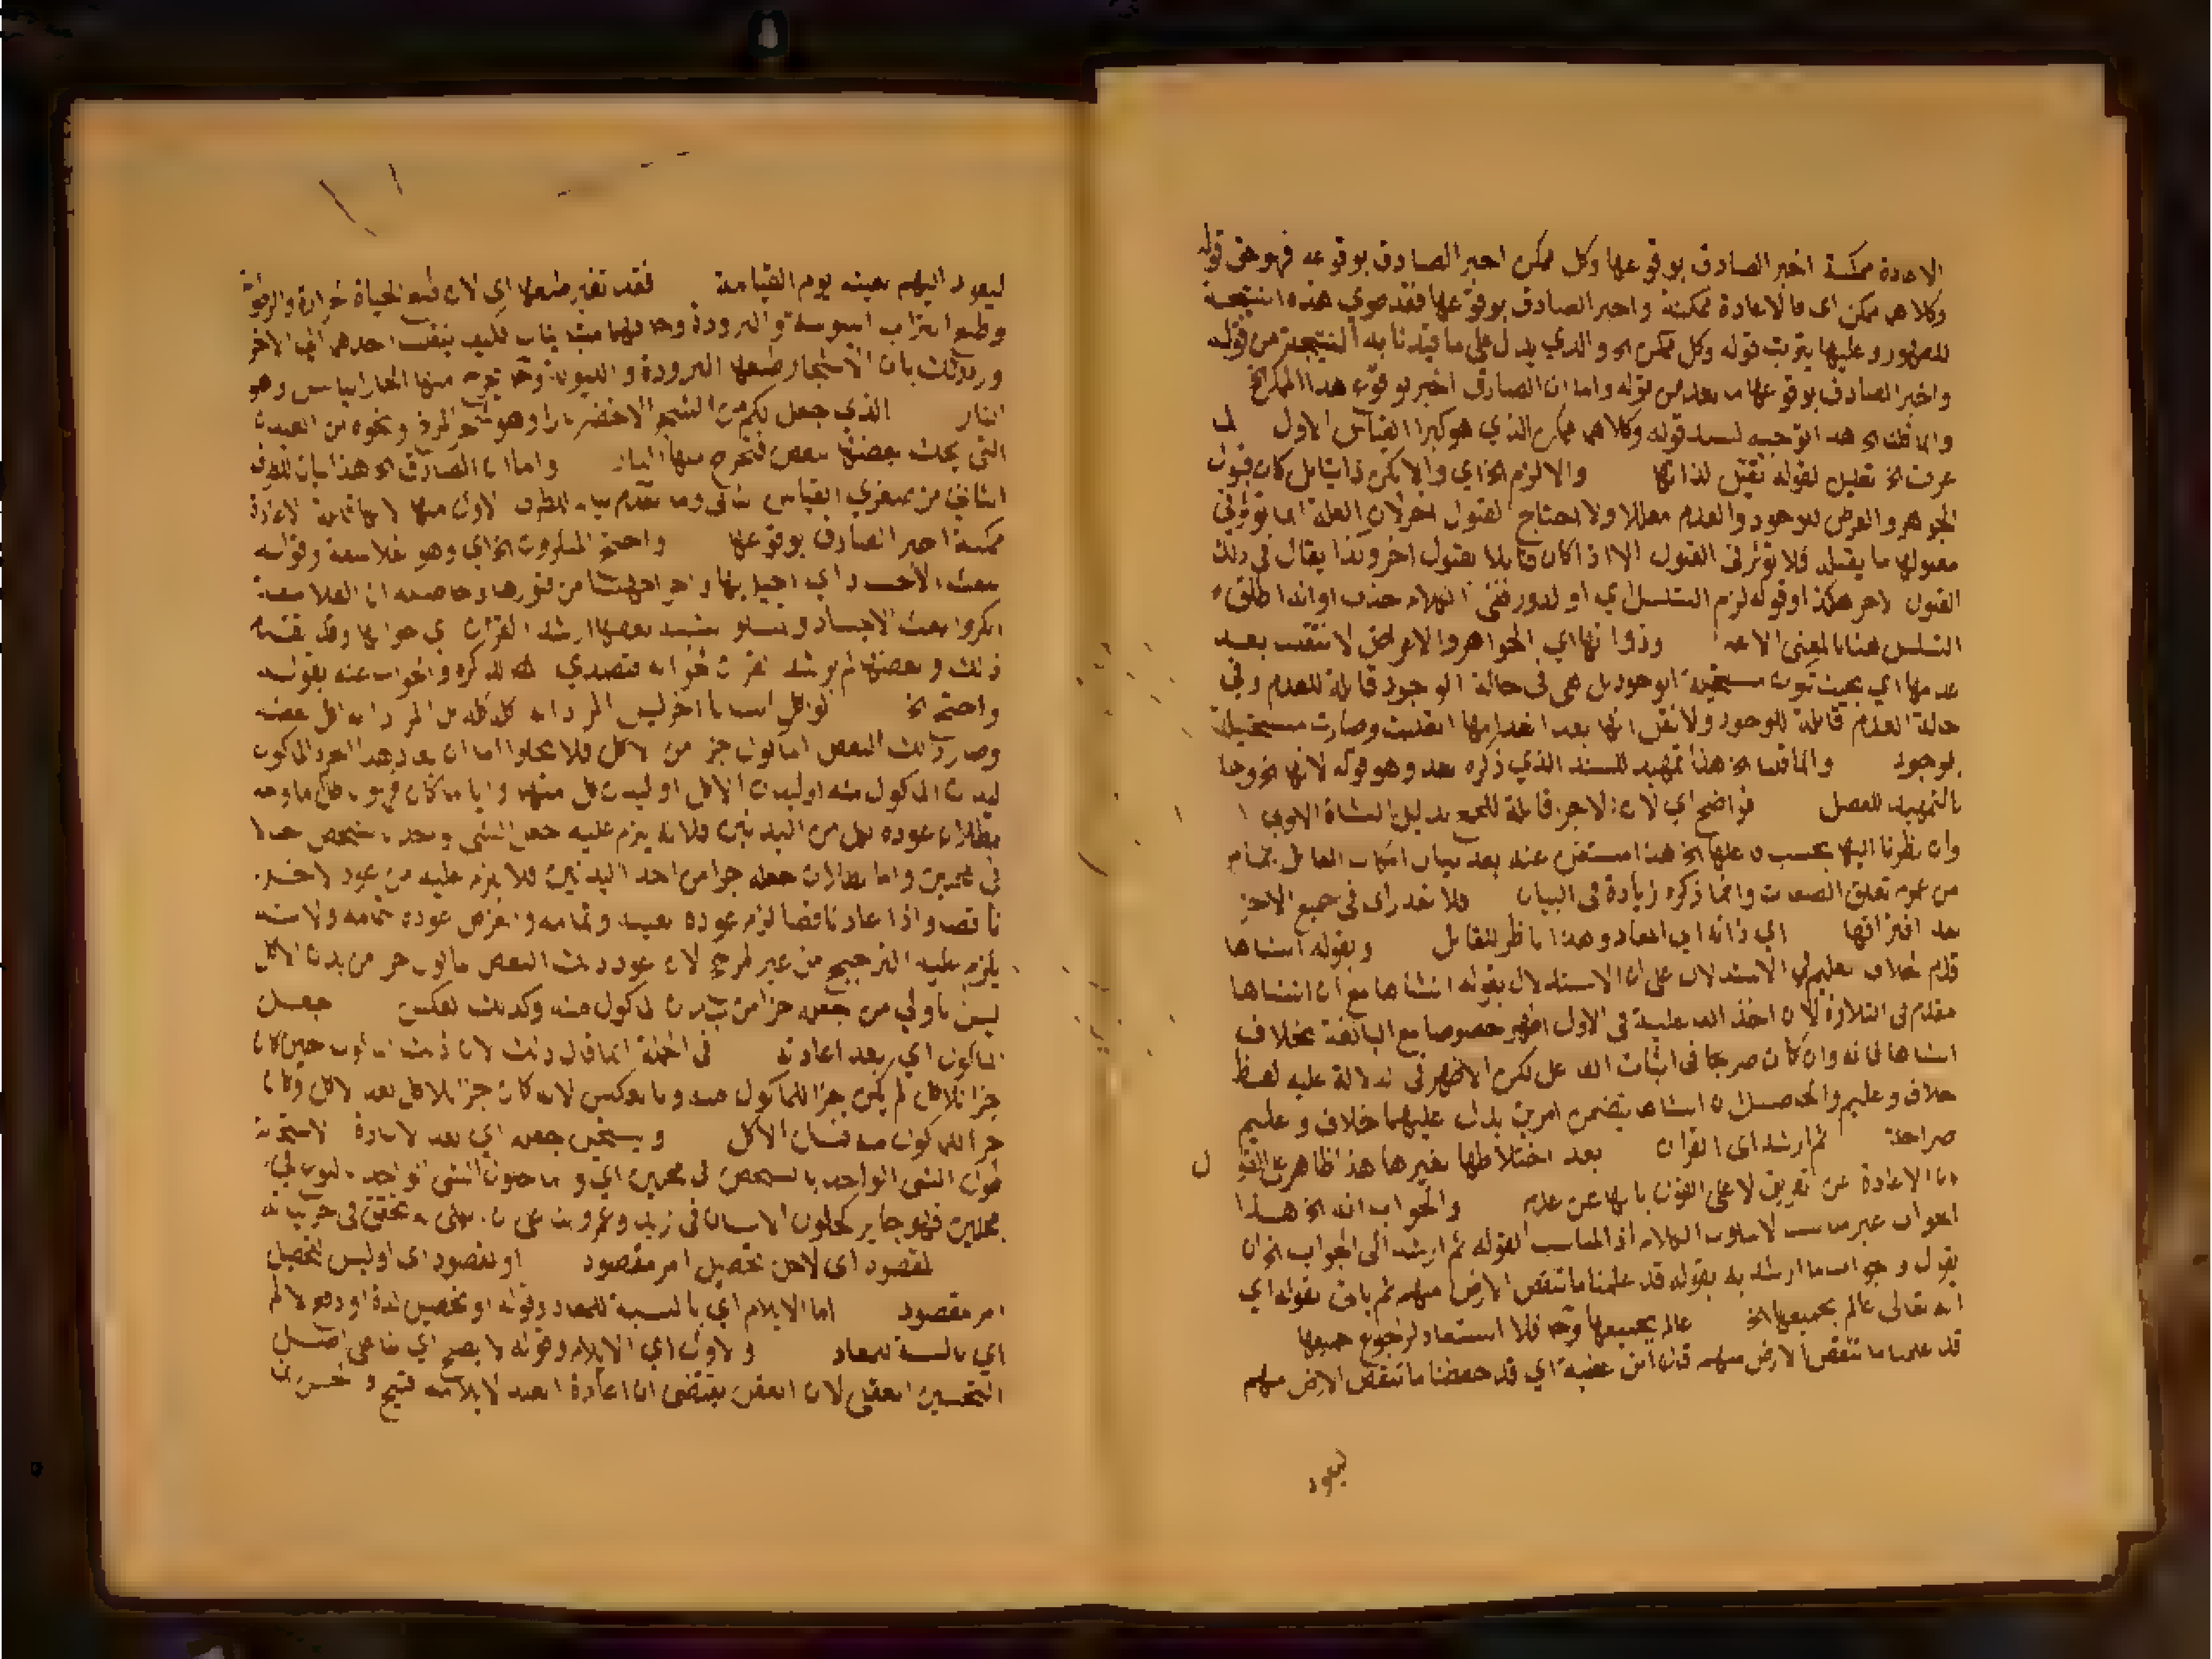 الاعادة ممكنة اخبر الصادق بوقوعها وكل ممكن اخبر الصادق بوقوعه فهو حق قوله
وكلاهما ممكن اى فالاعادة ممكنة واخبر الصادق بوقوعها فقد طوي هذه النتيجة
للظهور وعليها يترتب قوله وكل ممكن الخ والذي يدل على ما قيدنا به النتيجة من قوله
واخبر الصادق بوقوعها ما بعد من قوله واما ان الصادق اخبر بوقوع هذا الممكن الخ
وانما قلنا الخ هذا توجيه لسند قوله وكلاهما ممكن الذي هو كبرا القياس الاول لما
عرفت الخ تعليل لقوله تقبل لذاتها والا لزم الخ اي والا يكن ذاتيا بل كان قبول
الجوهر والعرض للوجود والعدم معللا ولاحتاج لقبول اخر لان العلة انما تؤثر في
معلولها ما يقبله فلا تؤثر في القبول الا اذا كان قابلا لقبول اخر وهذا يقال في ذلك
القبول الاخر هكذا وقوله لزم التسلسل اي او الدور ففي الكلام حذف او انه اطلق
التسلسل هنا بالمعنى الاعم وذواتها اي الجواهر والاعراض لا تنقلب بعد
عدمها اي بحيث تكون مستحيلة الوجود بل هي في حالة الوجود قابلة للعدم وفي
حالة العدم قابلة للوجود ولا نقل انها بعد انعدامها انقلبت وصارت مستحيلة
الوجود وانما قلنا الخ هذا تمهيد للسند الذي ذكره بعد وهو قوله لانها الخ وحا
بالتمهيد للفصل فواضح اي لان الاجزا قابلة للجمع بدليل النشاة الاولى
وان نظرنا اليها بحسب علمها الخ هذا مستغنى عنه بعد بيان امكان الفاعل بتمام
من عموم تعلق الصفات وانما ذكره زيادة في البيان فلا تعذر اى في جمع الاجزا
بعد افتراقها اي ذاته اي المعاد وهذا ناظر للقابل وبقوله انشاها
قدم خلاف عليم في الاستدلال على ان الاستدلال بقوله انشاها مع ان انشاها
مقدم في التلاوة لان اخذ الفاعلية في الاول اظهر خصوصا مع المبالغة بخلاف
انشاها فانه وان كان صريحا في اثبات الفاعل لكن الاظهر في الدلالة عليه لفظ
خلاق وعليم والحاصل ان انشاها يتضمن امرين يدل عليهما خلاق وعليم
صراحة ثم ارشد اى القران بعد اختلاطها بغيرها هذا ظاهر على القول
بان الاعادة عن تفريق لا على القول بانها عن عدم والجواب انه الخ هذا
الجواب غير مناسب لاسلوب الكلام اذ المناسب لقوله ثم ارشد الى الجواب الخ ان
يقول وجواب ما ارشد به بقوله قد علمنا ما تنقص الارض منهم ثم ياتي بقوله اي
انه تعالى عالم بجميعها الخ عالم بجميعها وح فلا استبعاد لرجوع جميعها
قد علمنا ما تنقص الارض منهم قال ابن عطية اي قد حفظنا ما تنقص الارض منهم
ليعود
ليعود اليهم بعينه يوم القيامة فقد تغير طبعها اي لان طبع الحياة الحرارة والرطوبة
وطبع التراب اليبوسة والبرودة وح فبينهما مباينات فكيف ينقلب احدهما الى الاخر
ورد ذلك بان الاشجار طبعها البرودة والليونة وح تخرج منها الحار اليابس وهو
النار الذي جعل لكم من الشجر الاخضر نارا وهو شجر المرخ ونحوه من العيدان
التي يحك بعضها ببعض فتخرج منها النار واما ان الصادق الخ هذا بيان للطرف
الثاني من صغرى القياس الثاني وما تقدم بيان للطرف الاول منها لانها قائلة الاعادة
ممكنة اخبر الصادق بوقوعها واحتج المنكرون الخ اي وهو الفلاسفة وقوله
ببعث الاجساد اي
انكروا بعث الاجساد وتمسكوا بشبه بعضها ارشد القران الى جوابها وقد تقدم
ذلك وبعضها لم يرشد القران لجوابه فتصدى له بذكره والجواب عنه بقوله
واحتج الخ لو اكل انسان اخر ليس المراد انه اكله كله بل المراد انه اكل بعضه
وصار ذلك البعض الماكول جزا من الاكل فلا يخلو اما ان يعاد هذا الجزء الماكول
لبدن الماكول منه او لبدن الاكل او لبدن كل منهما وايا ما كان فهو باطل اما وجه
بطلان عوده لكل من البدنين فلانه يلزم عليه جعل الشي وحده شخص حالا
في محلين واما بطلان جعله جزا من احد البدنين فلا يلزم عليه من عود الاخر
ناقصا واذا عاد ناقصا لزم عوده بعينه وتمامه والغرض عوده بتمامه ولانه
يلزم عليه الترجيح من غير مرجح لان عود ذلك البعض الماكول جزا من بدن الاكل
ليس باولى من جعله جزا من بدن الماكول منه وكذلك العكس جعل
الماكول اي بعد اعادته في الجملة انما قال ذلك لان ذلك الماكول حين كان
جزا للاكل لم يكن جزا للماكول منه وبالعكس لانه كان جزا للاكل بعد الاكل وكان
جزا للماكول منه قبل الاكل ويستحيل جعله اي بعد الاعادة لاستحالة
حلول الشي الواحد بالشخص في محلين اي واما حلول الشي الواحد بالنوع في
محلين فهو جايز كحلول الانسان في زيد وعمرو بناء على ان الكلي يتحقق في جزئياته
لمقصود اى لاجل تحصيل امر مقصود او لمقصود اى اوليس لتحصيل
امر مقصود اما الايلام اي بالنسبة للمعاد وقوله او تحصيل لذة او دفع الالم
اي بالنسبة للمعاد والاول اي الايلام وقوله لا يصح اي بناء على اصل
التحسين العقلي لان العقل يقتضي ان اعادة العبد لايلامه قبيح